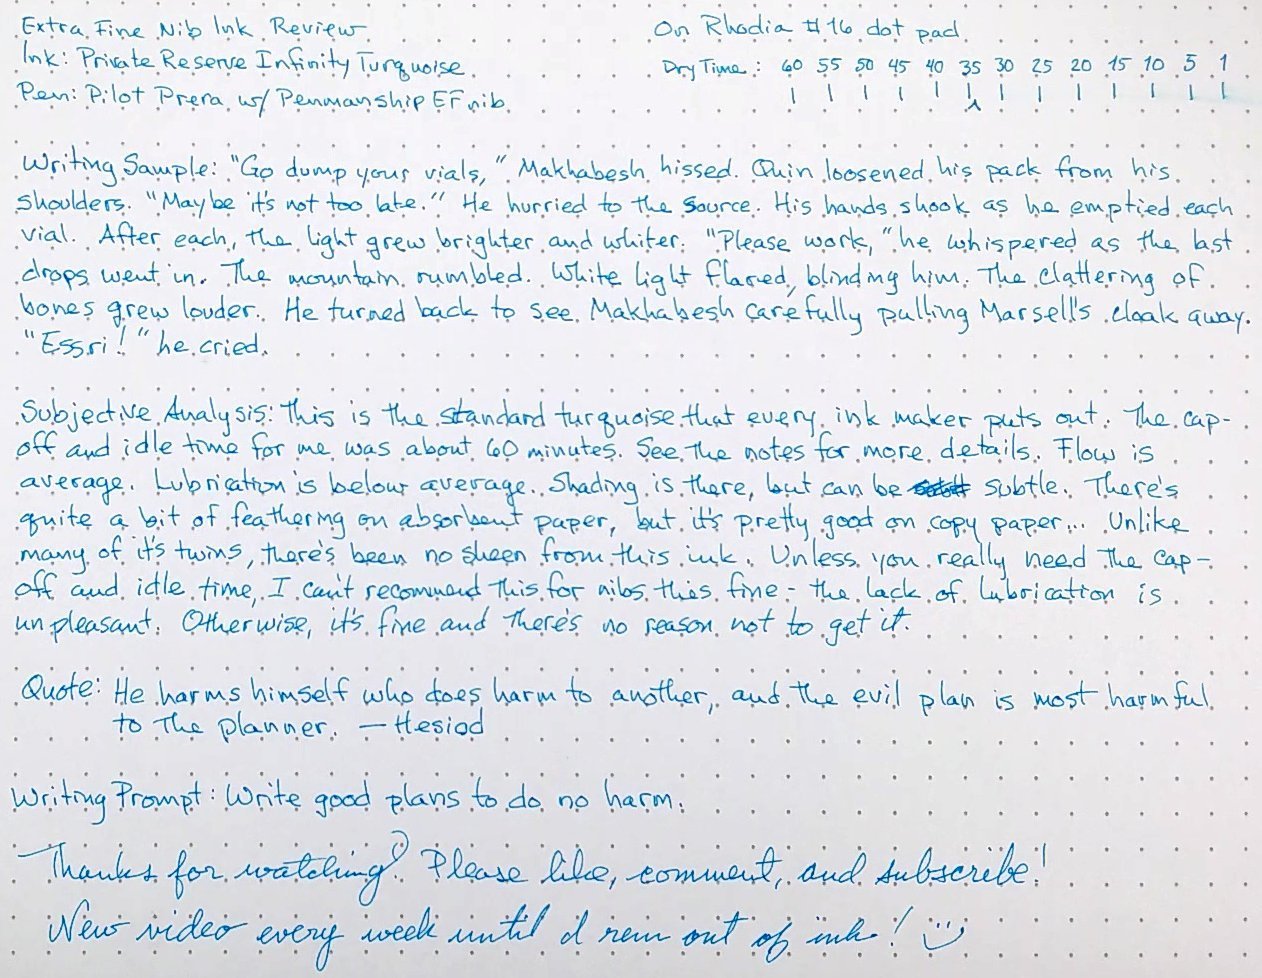 Extra Fine Nib Ink Review. On Rhodia #16 dot pad.
Ink: Private Reserve Infinity Turquoise. Dry Time: 60 55 50 45 40 35 30 25 20 15 10 5 1
Pen: Pilot Prera w/ Penmanship EF nib
Writing Sample: "Go dump your vials," Makhabesh hissed. Quin loosened his pack from his
shoulders. "Maybe it's not too late." He hurried to the source. His hands shook as he emptied each
vial. After each, the light grew brighter and whiter. "Please work," he whispered as the last
drops went in. The mountain rumbled. White light flared, blinding him. The clattering of
bones grew louder. He turned back to see Makhabesh carefully pulling Marsell's cloak away.
"Essri!" he cried.
Subjective Analysis: This is the standard turquoise that every ink maker puts out. The cap-
off and idle time for me was about 60 minutes. See the notes for more details. Flow is
average. Lubrication is below average. Shading is there, but can be subtle. There's
quite a bit of feathering on absorbent paper, but it's pretty good on copy paper... Unlike
many of it's twins, there's been no sheen from this ink. Unless you really need the cap-
off and idle time, I can't recommend this for nibs this fine - the lack of lubrication is
unpleasant. Otherwise, it's fine and there's no reason not to get it.
Quote: He harms himself who does harm to another, and the evil plan is most harmful
to the planner. — Hesiod
Writing Prompt: Write good plans to do no harm.
Thanks for watching! Please like, comment, and subscribe!
New video every week until I run out of ink! :)